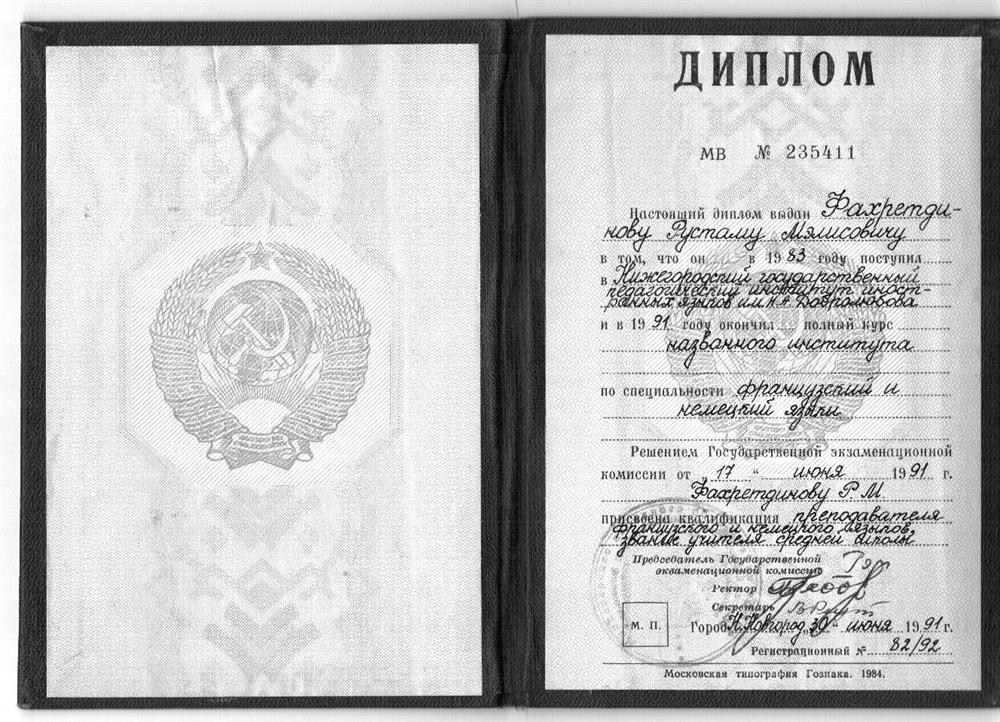 ДИПЛОМ
МВ № 235411
Настоящий диплом выдан Фахретди-
нову Рустаму Мялисовичу
в том, что он в 1983 году поступил
в Нижегородский государственный
педагогический институт иност-
ранных языков им. Н.А. Добролюбова
и в 1991 году окончил полный курс
названного института
по специальности французский и
немецкий языки
Решением Государственной экзаменационной
комиссии от „17“ июня 1991 г.
Фахретдинову Р.М.
присвоена квалификация преподавателя
французского и немецкого языков,
звание учителя средней школы
Председатель Государственной
экзаменационной комиссии
Ректор
Секретарь
М. П.
Город Н.Новгород „30“ июня 1991 г.
Регистрационный № 82/92
Московская типография Гознака. 1984.